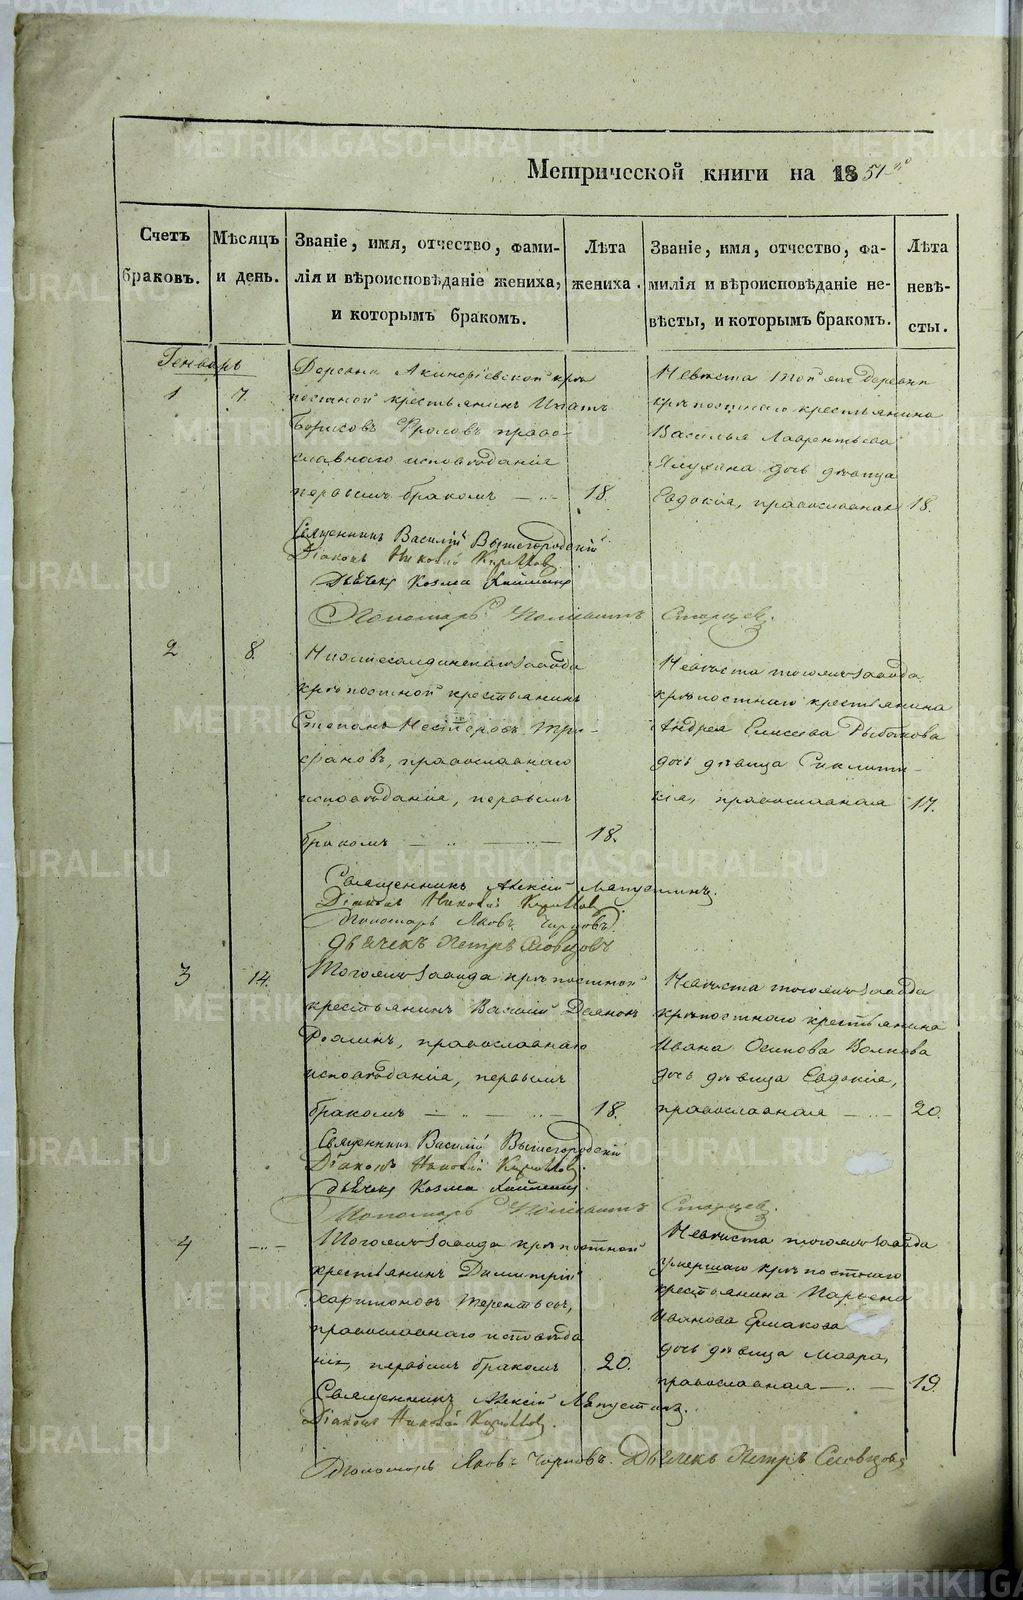 Метрической книги на 1851й
Счетъ браковъ.
Мѣсяцъ и день.
Званіе, имя, отчество, фами-
лія и вѣроисповѣданіе жениха,
и которымъ бракомъ.
Лѣта жениха.
Званіе, имя, отчество, фа-
милія и вѣроисповѣданіе не-
вѣсты, и которымъ бракомъ.
Лѣта невѣ-
сты.
Генварь
1 7.
Деревни Акинфіевской крѣ
постной крестьянинъ Игнатъ
Борисовъ Фроловъ право-
славнаго исповѣданія
первымъ бракомъ 18.
Невѣста той же деревни
крѣпостнаго крестьянина
Василья Лаврентьева
Ялунина дочь дѣвица
Евдокія, православная 18.
Священникъ Василій Вышегородскій
Діаконъ Николай Кирилловъ
Дьячекъ Козма
Пономарь Старцев.
2 8.
Нижнесалдинскаго завода
крѣпостной крестьянинъ
Степанъ Несторовъ Три-
фановъ, православнаго
исповѣданія, первымъ
бракомъ 18.
Невѣста тогожъ завода
крѣпостнаго крестьянина
Андрея Елисѣева Рыбакова
дочь дѣвица Синклити-
кія, православная 17.
Священникъ Алексій
Діаконъ Николай Кирилловъ
Пономарь Яковъ
Дьячекъ Петръ Словцовъ
3 14.
Тогожъ завода крѣпостной
крестьянинъ Василій Деянов
исповѣданія, первымъ
православнаго
бракомъ 18.
Невѣста тогожъ завода
крѣпостнаго крестьянина
Ивана Осипова Волкова
дочь дѣвица Евдокія,
православная 20.
Священникъ Василій Вышегородскій
Діаконъ Николай Кирилловъ
Дьячекъ Козма
Пономарь Старцев.
4
Тогожъ завода крѣпостной
крестьянинъ Димитрій
Харитоновъ Терентьевъ,
православнаго исповѣда
нія, первымъ бракомъ 20.
Невѣста тогожъ завода
умершаго крѣпостнаго
крестьянина Парѳена
Иванова Ермакова
дочь дѣвица Мавра,
православная 19.
Священникъ Алексій
Діаконъ Николай Кирилловъ
Пономарь Яковъ Дьячекъ Петръ Словцовъ
METRIKI.GASO-URAL.RU